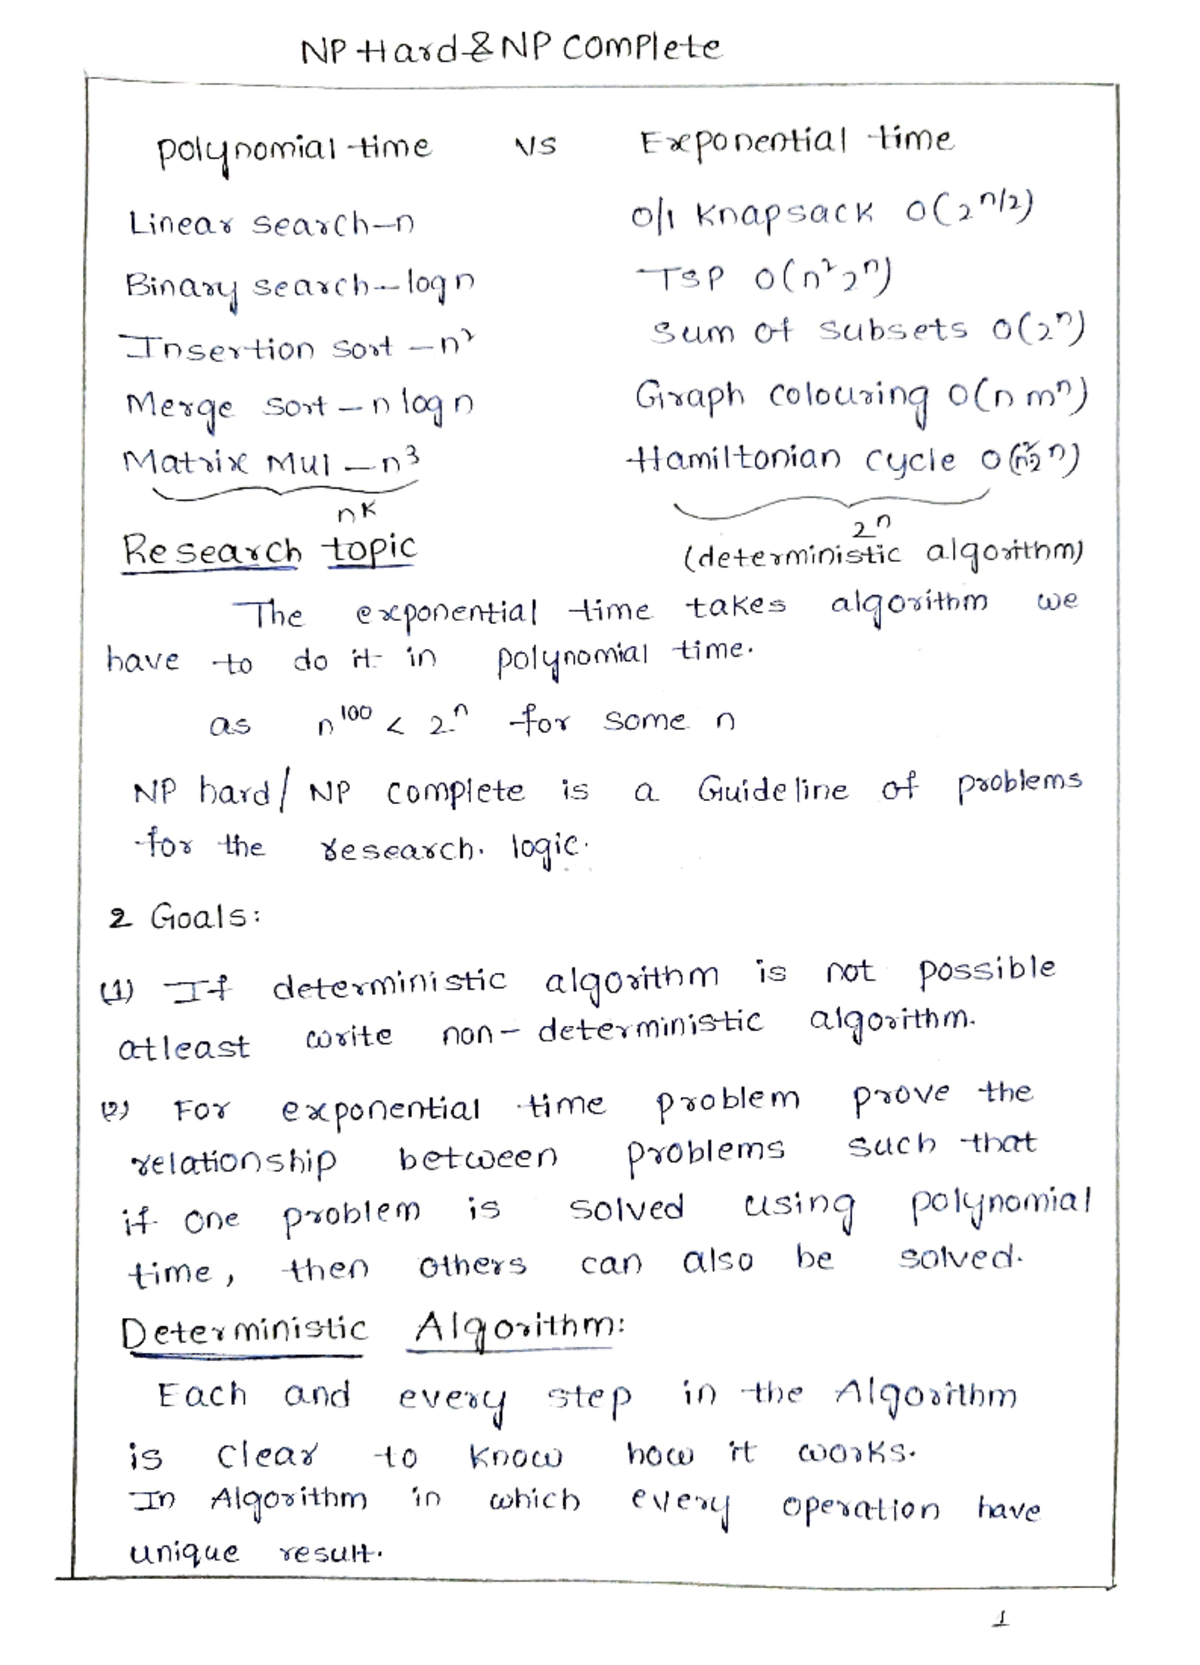 NP Hard & NP Complete
polynomial time vs Exponential time
Linear search - n o/1 Knapsack O(2^n/2)
Binary search - log n TSP O(n²2ⁿ)
Insertion sort - n² Sum of subsets O(2ⁿ)
Merge sort - n log n Graph colouring O(n mⁿ)
Matrix Mul - n³ Hamiltonian cycle O(n²2ⁿ)
nᴷ 2ⁿ
Research topic (deterministic algorithm)
The exponential time takes algorithm we
have to do it in polynomial time.
as n¹⁰⁰ < 2ⁿ for some n
NP hard/ NP complete is a Guideline of problems
for the research. logic.
2 Goals:
(1) If deterministic algorithm is not possible
atleast write non-deterministic algorithm.
(2) For exponential time problem prove the
relationship between problems such that
if one problem is solved using polynomial
time, then others can also be solved.
Deterministic Algorithm:
Each and every step in the Algorithm
is clear to know how it works.
In Algorithm in which every operation have
unique result.
1